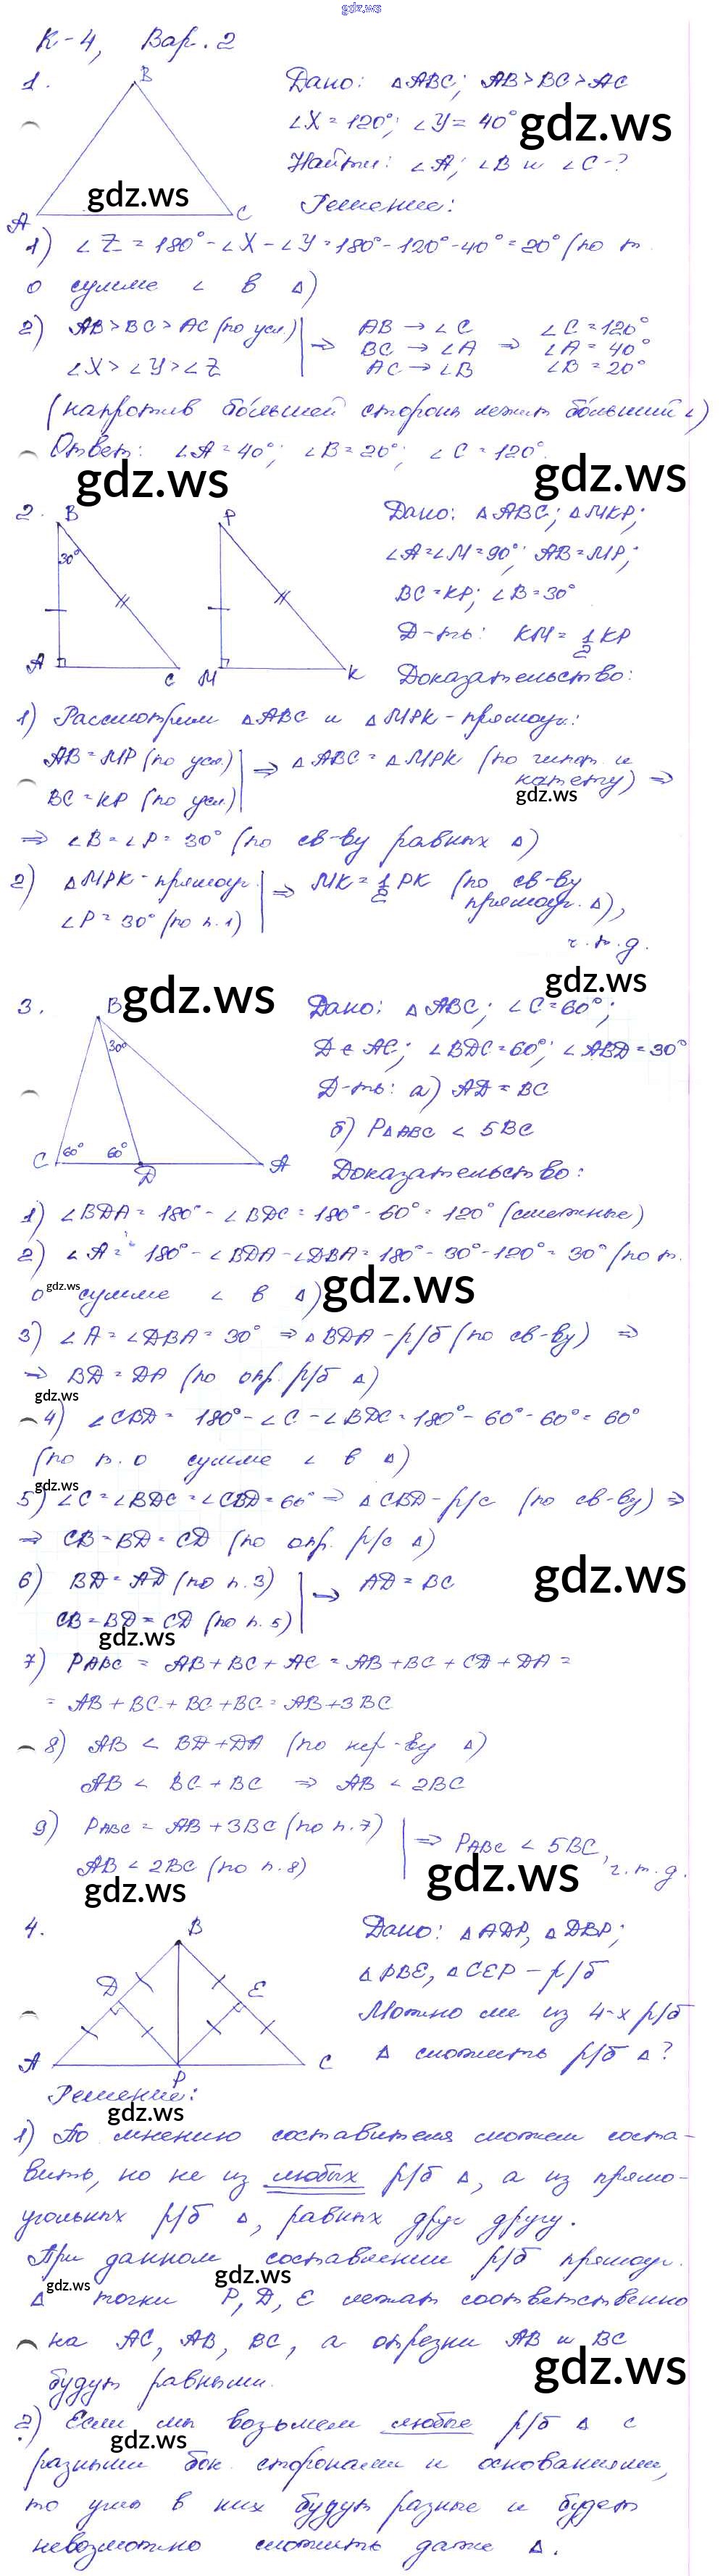 gdz.ws
К-4, Вар. 2
1.
B
A
C
Дано: △ABC; AB>BC>AC
∠X=120°; ∠Y=40°
gdz.ws
Найти: ∠A; ∠B и ∠C-?
gdz.ws
Решение:
1) ∠Z=180°-∠X-∠Y=180°-120°-40°=20° (по т.
о сумме ∠ в △)
2) AB>BC>AC (по усл.)
∠X>∠Y>∠Z
⇒
AB → ∠C
BC → ∠A
AC → ∠B
⇒
∠C=120°
∠A=40°
∠B=20°
(напротив бо́льшей стороны лежит бо́льший ∠)
Ответ: ∠A=40°; ∠B=20°; ∠C=120°.
gdz.ws
gdz.ws
2.
B
30°
A
C
P
M
K
Дано: △ABC; △MKP;
∠A=∠M=90°; AB=MP;
BC=KP; ∠B=30°
Д-ть: KM=1/2 KP
Доказательство:
1) Рассмотрим △ABC и △MPK-прямоуг.:
AB=MP (по усл.)
BC=KP (по усл.)
⇒ △ABC=△MPK (по гипот. и
катету) ⇒
gdz.ws
⇒ ∠B=∠P=30° (по св-ву равных △)
2) △MPK-прямоуг.
∠P=30° (по п.1)
⇒ MK=1/2 PK (по св-ву
прямоуг. △),
ч.т.д.
gdz.ws
gdz.ws
3.
B
30°
C
60°
60°
D
A
Дано: △ABC; ∠C=60°;
D∈AC; ∠BDC=60°; ∠ABD=30°
Д-ть: а) AD=BC
б) P△ABC < 5BC
Доказательство:
1) ∠BDA=180°-∠BDC=180°-60°=120° (смежные)
2) ∠A=180°-∠BDA-∠DBA=180°-30°-120°=30° (по т.
о сумме ∠ в △)
gdz.ws
gdz.ws
3) ∠A=∠DBA=30° ⇒ △BDA-р/б (по св-ву) ⇒
⇒ BD=DA (по опр. р/б △)
gdz.ws
4) ∠CBD=180°-∠C-∠BDC=180°-60°-60°=60°
(по т. о сумме ∠ в △)
gdz.ws
5) ∠C=∠BDC=∠CBD=60° ⇒ △CBD-р/с (по св-ву) ⇒
⇒ CB=BD=CD (по опр. р/с △)
6) BD=AD (по п.3)
CB=BD=CD (по п.5)
⇒ AD=BC
gdz.ws
gdz.ws
7) PABC = AB+BC+AC = AB+BC+CD+DA =
= AB+BC+BC+BC=AB+3BC
8) AB < BD+DA (по нер-ву △)
AB < BC+BC ⇒ AB < 2BC
9) PABC = AB+3BC (по п.7)
AB < 2BC (по п.8)
⇒ PABC < 5BC,
ч.т.д.
gdz.ws
gdz.ws
4.
B
D
E
A
P
C
Дано: △ADP, △DBP;
△PBE, △CEP-р/б
Можно ли из 4-х р/б
△ сложить р/б △?
Решение:
gdz.ws
1) По мнению составителя можем соста-
вить, но не из любых р/б △, а из прямо-
угольных р/б △, равных друг другу.
При данном составлении р/б прямоуг.
gdz.ws
gdz.ws
△ точки P, D, E лежат соответственно
на AC, AB, BC, а отрезки AB и BC
будут равными.
gdz.ws
2) Если мы возьмем любые р/б △ с
gdz.ws
разными бок. сторонами и основаниями,
то углы в них будут разные и будет
невозможно сложить даже △.